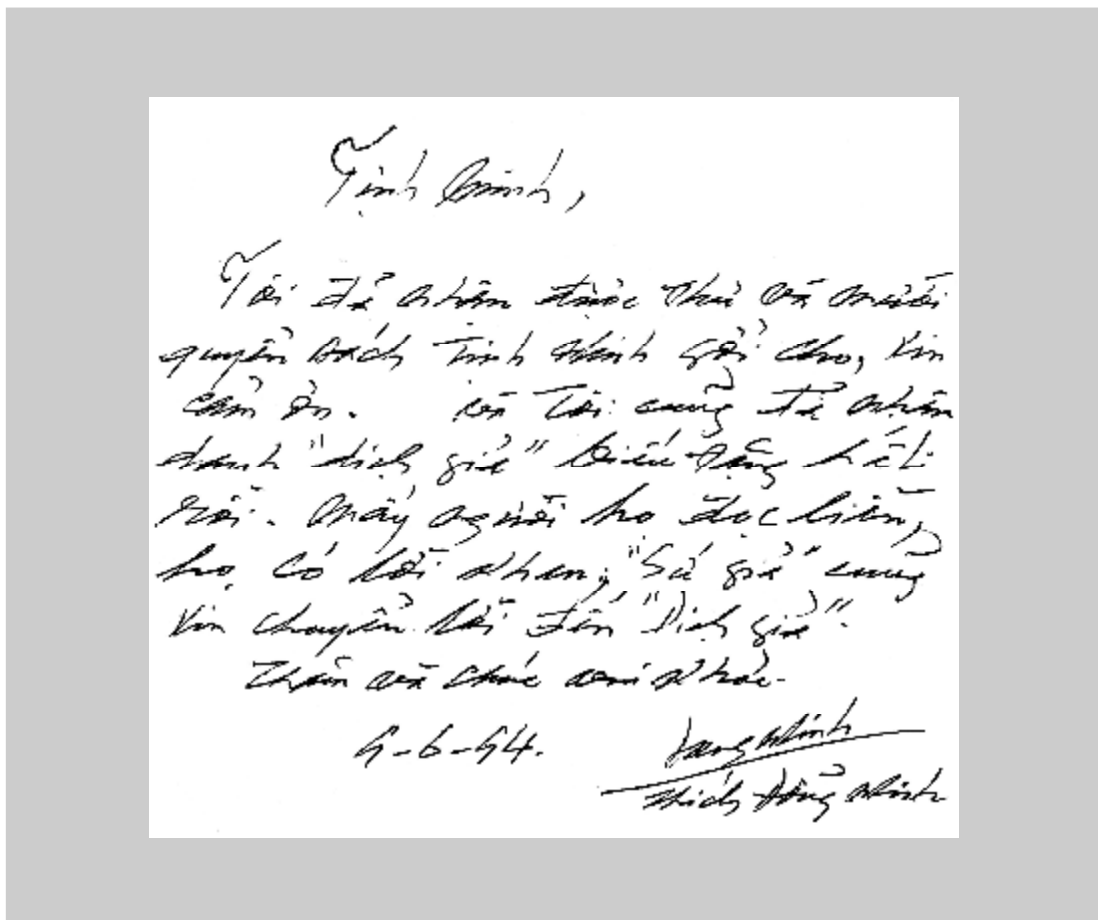 Tịnh Minh,
Tôi đã nhận được thư và mười
quyển sách Tịnh Minh gởi cho, xin
cảm ơn. Tôi cũng đã nhân
danh "dịch giả" biếu tặng hết
rồi. Mấy người họ đọc liền,
họ có lời khen, "Sứ giả" cũng
xin chuyển lời đến "Dịch giả".
Thân và chúc vui khỏe.
9-6-94.
Minh
Thích Đổng Minh